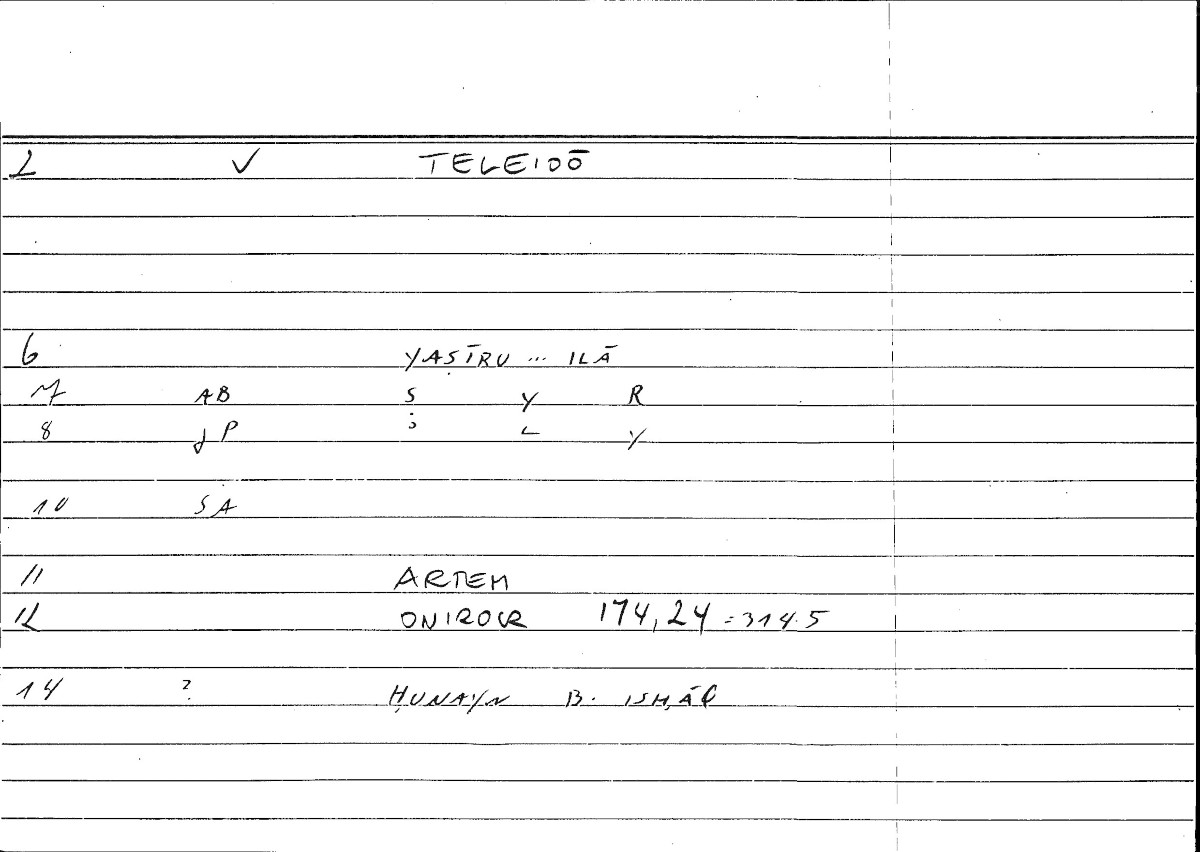 2 V TELEIOŌ
6 YAṢĪRU ... ILĀ
7 AB S Y R
8 jP
10 SA
11 ARTEM
12 ONIROCR 174,24 = 314.5
14 ? ḤUNAYN B. ISḤĀQ